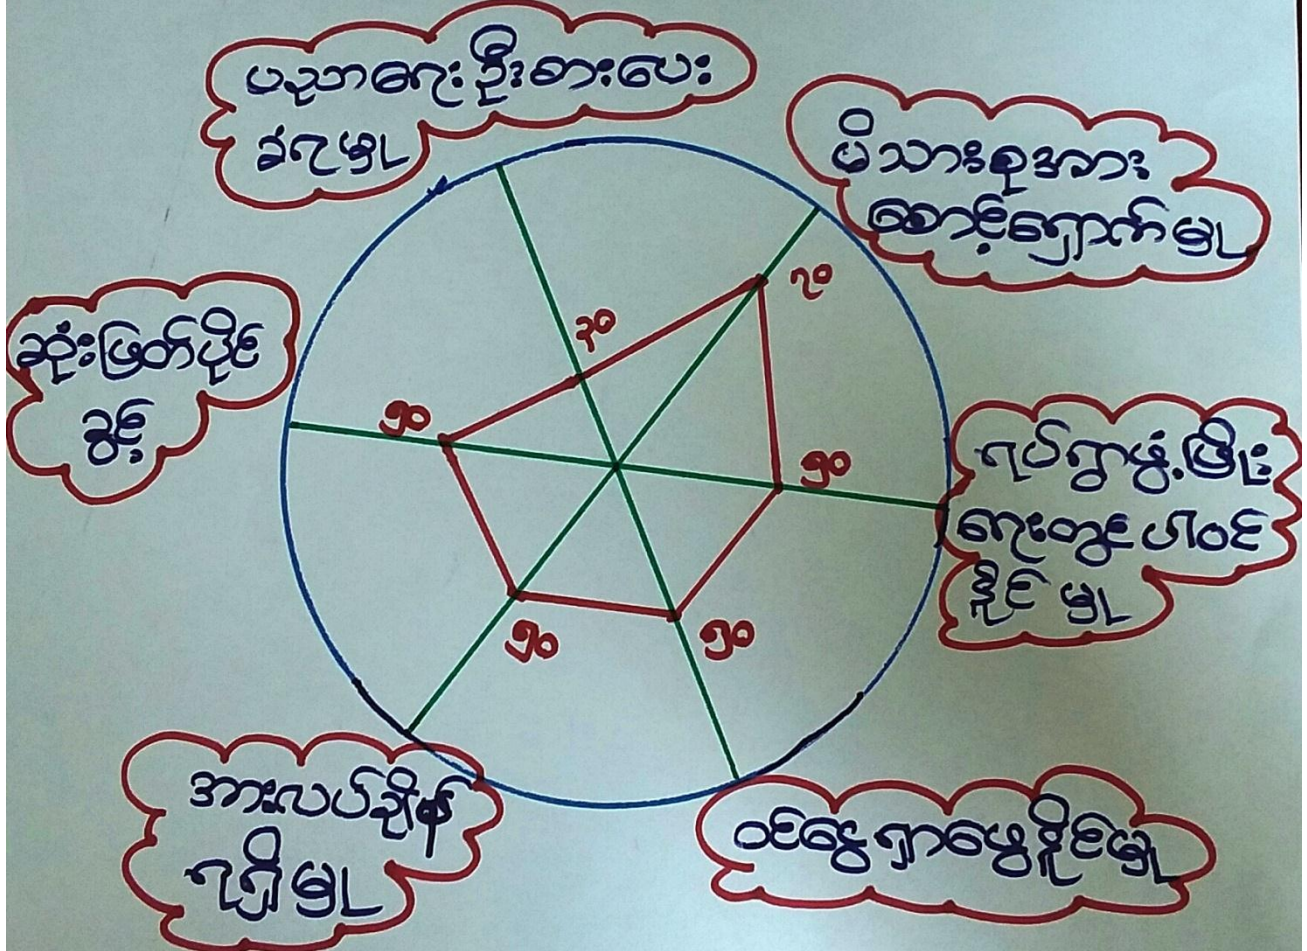 ပညာရေးဦးစားပေး
ခံရမှု
မိသားစုအား
စောင့်ရှောက်မှု
၇၀
၃၀
ဆုံးဖြတ်ပိုင်
ခွင့်
၅၀
ရပ်ရွာဖွံ့ဖြိုး
ရေးတွင်ပါဝင်
နိုင်မှု
၅၀
၅၀
၅၀
အားလပ်ချိန်
ရရှိမှု
ဝင်ငွေရှာဖွေနိုင်မှု